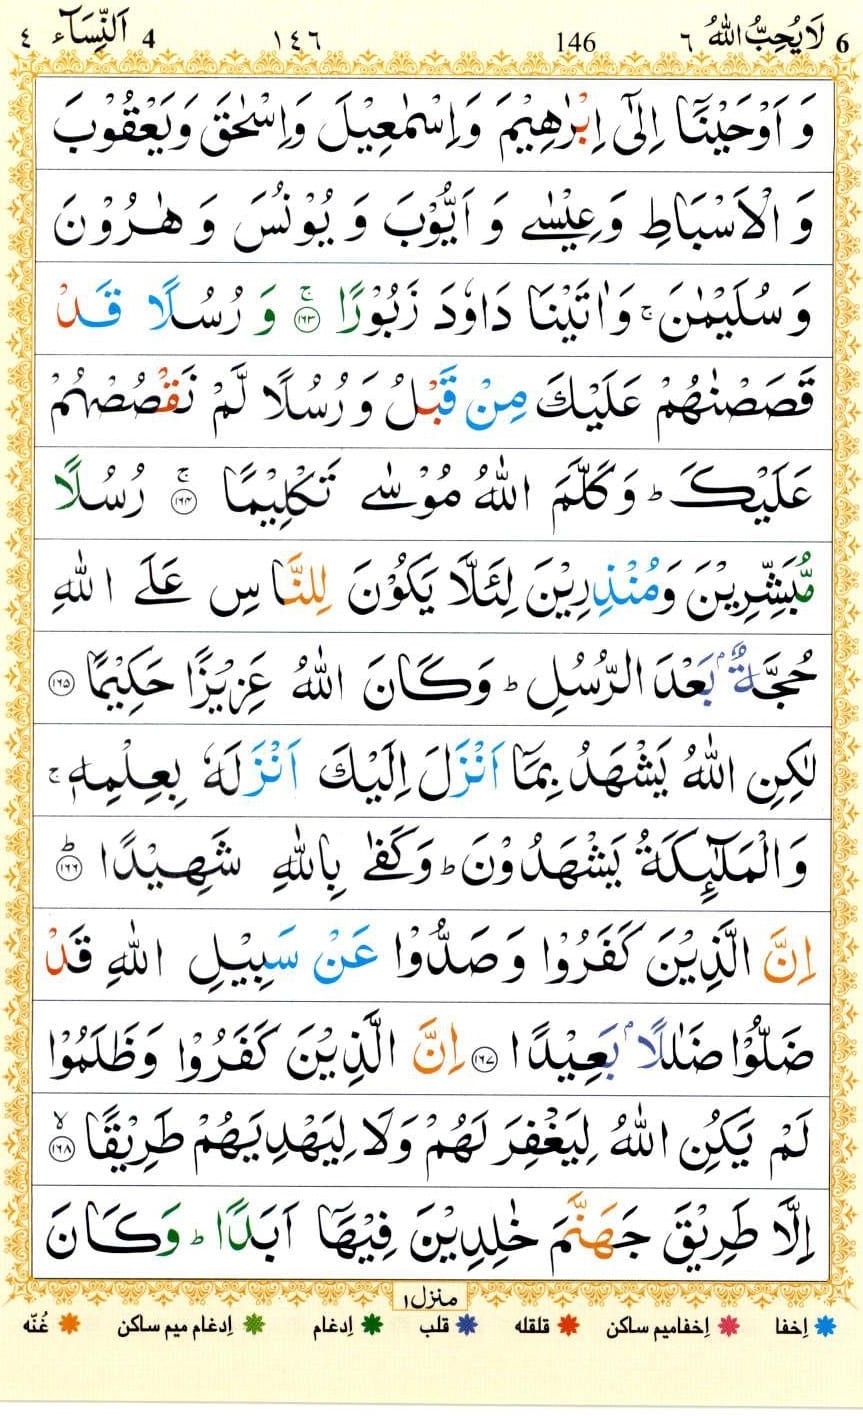 6 لَا يُحِبُّ اللّٰهُ ٦ 146 ١٤٦ 4 اَلنِّسَآء ٤
وَ اَوْحَيْنَآ اِلٰٓى اِبْرٰهِيْمَ وَاِسْمٰعِيْلَ وَاِسْحٰقَ وَيَعْقُوْبَ
وَ الْاَسْبَاطِ وَعِيْسٰى وَ اَيُّوْبَ وَ يُوْنُسَ وَ هٰرُوْنَ
وَ سُلَيْمٰنَ ۚ وَاٰتَيْنَا دَاوٗدَ زَبُوْرًا ۚ ﴿١٦٣﴾ وَ رُسُلًا قَدْ
قَصَصْنٰهُمْ عَلَيْكَ مِنْ قَبْلُ وَ رُسُلًا لَّمْ نَقْصُصْهُمْ
عَلَيْكَ ؕ وَ كَلَّمَ اللّٰهُ مُوْسٰى تَكْلِيْمًا ۚ ﴿١٦٤﴾ رُسُلًا
مُّبَشِّرِيْنَ وَمُنْذِرِيْنَ لِئَلَّا يَكُوْنَ لِلنَّاسِ عَلَى اللّٰهِ
حُجَّةٌۢ بَعْدَ الرُّسُلِ ؕ وَ كَانَ اللّٰهُ عَزِيْزًا حَكِيْمًا ﴿١٦٥﴾
لٰكِنِ اللّٰهُ يَشْهَدُ بِمَآ اَنْزَلَ اِلَيْكَ اَنْزَلَهٗ بِعِلْمِهٖ ۚ
وَالْمَلٰٓئِكَةُ يَشْهَدُوْنَ ؕ وَكَفٰى بِاللّٰهِ شَهِيْدًا ؕ ﴿١٦٦﴾
اِنَّ الَّذِيْنَ كَفَرُوْا وَ صَدُّوْا عَنْ سَبِيْلِ اللّٰهِ قَدْ
ضَلُّوْا ضَلٰلًۢا بَعِيْدًا ﴿١٦٧﴾ اِنَّ الَّذِيْنَ كَفَرُوْا وَظَلَمُوْا
لَمْ يَكُنِ اللّٰهُ لِيَغْفِرَ لَهُمْ وَلَا لِيَهْدِيَهُمْ طَرِيْقًا ۙ ﴿١٦٨﴾
اِلَّا طَرِيْقَ جَهَنَّمَ خٰلِدِيْنَ فِيْهَآ اَبَدًا ؕ وَ كَانَ
منزل ١
اِخفا اِخفامیم ساکن قلقله قلب اِدغام اِدغام میم ساکن غُنّه